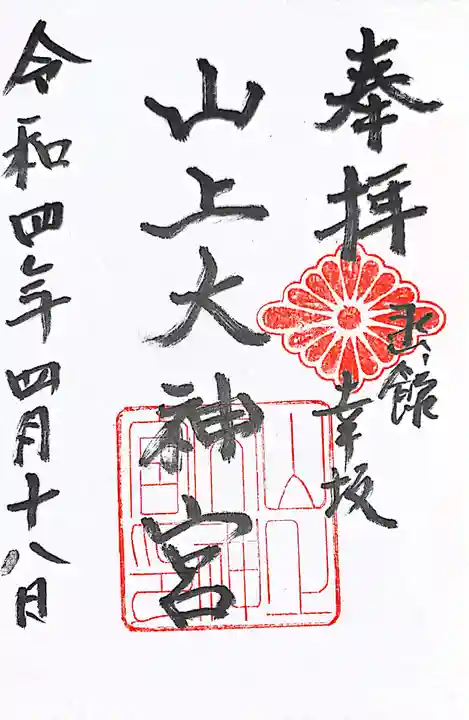 奉拝
函館
幸坂
山上大神宮
令和四年四月十八日